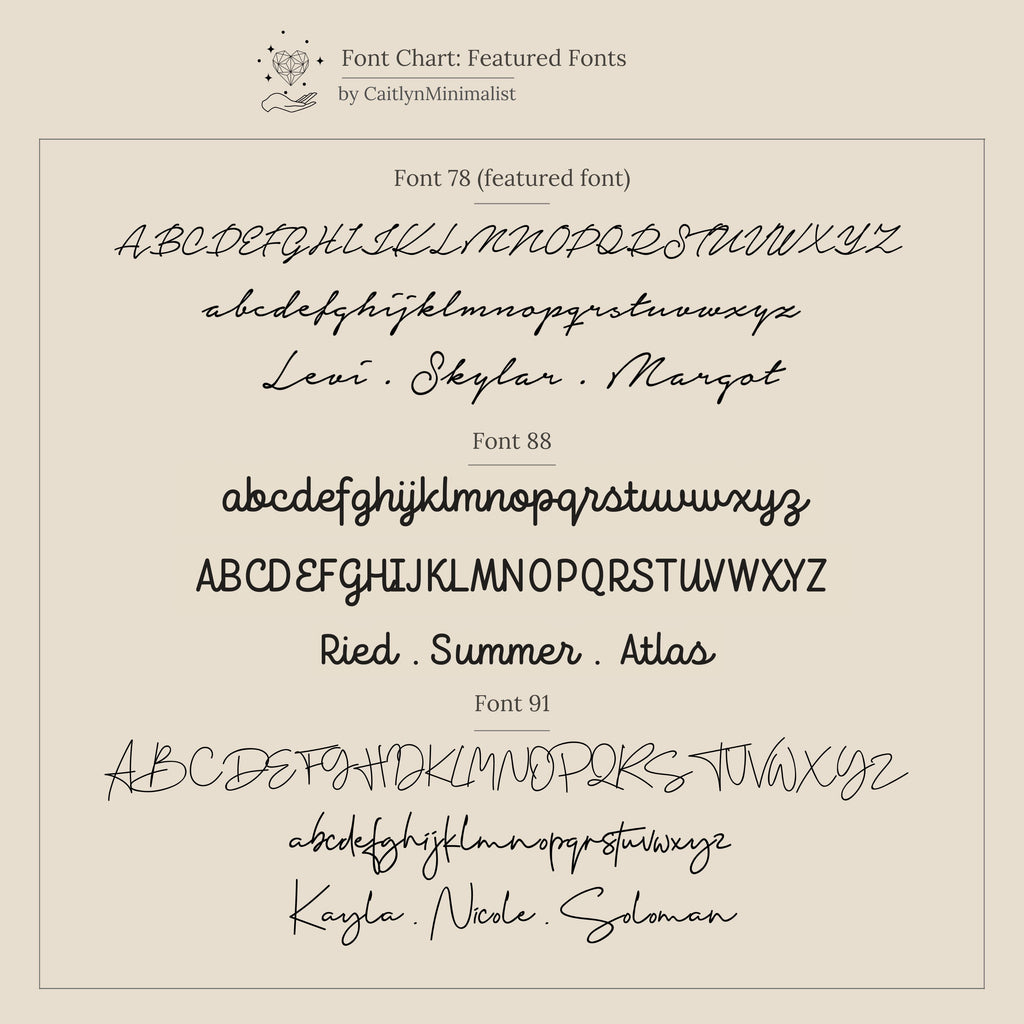 Font Chart: Featured Fonts
by CaitlynMinimalist
Font 78 (featured font)
ABCDEFGHIJKLMNOPQRSTUVWXYZ
abcdefghijklmnopqrstuvwxyz
Levi . Skylar . Margot
Font 88
abcdefghijklmnopqrstuvwxyz
ABCDEFGHIJKLMNOPQRSTUVWXYZ
Ried . Summer . Atlas
Font 91
ABCDEFGHIJKLMNOPQRSTUVWXYZ
abcdefghijklmnopqrstuvwxyz
Kayla . Nicole . Soloman